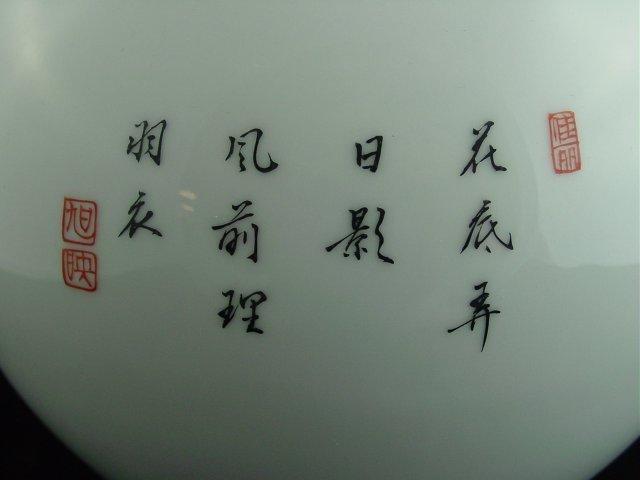 佳丽
花底弄
日影
风前理
羽衣
旭映